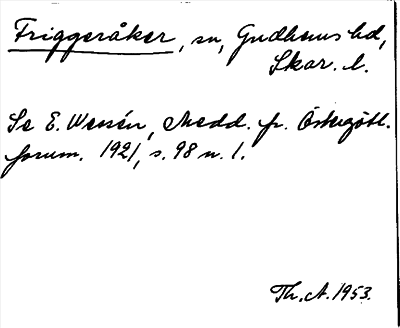 Friggeråker, sn, Gudhems hd,
Skar. l.
Se E. Wessén, Medd. fr. Östergötl.
fornm. 1921, s. 98 n. 1.
Th. A. 1953.